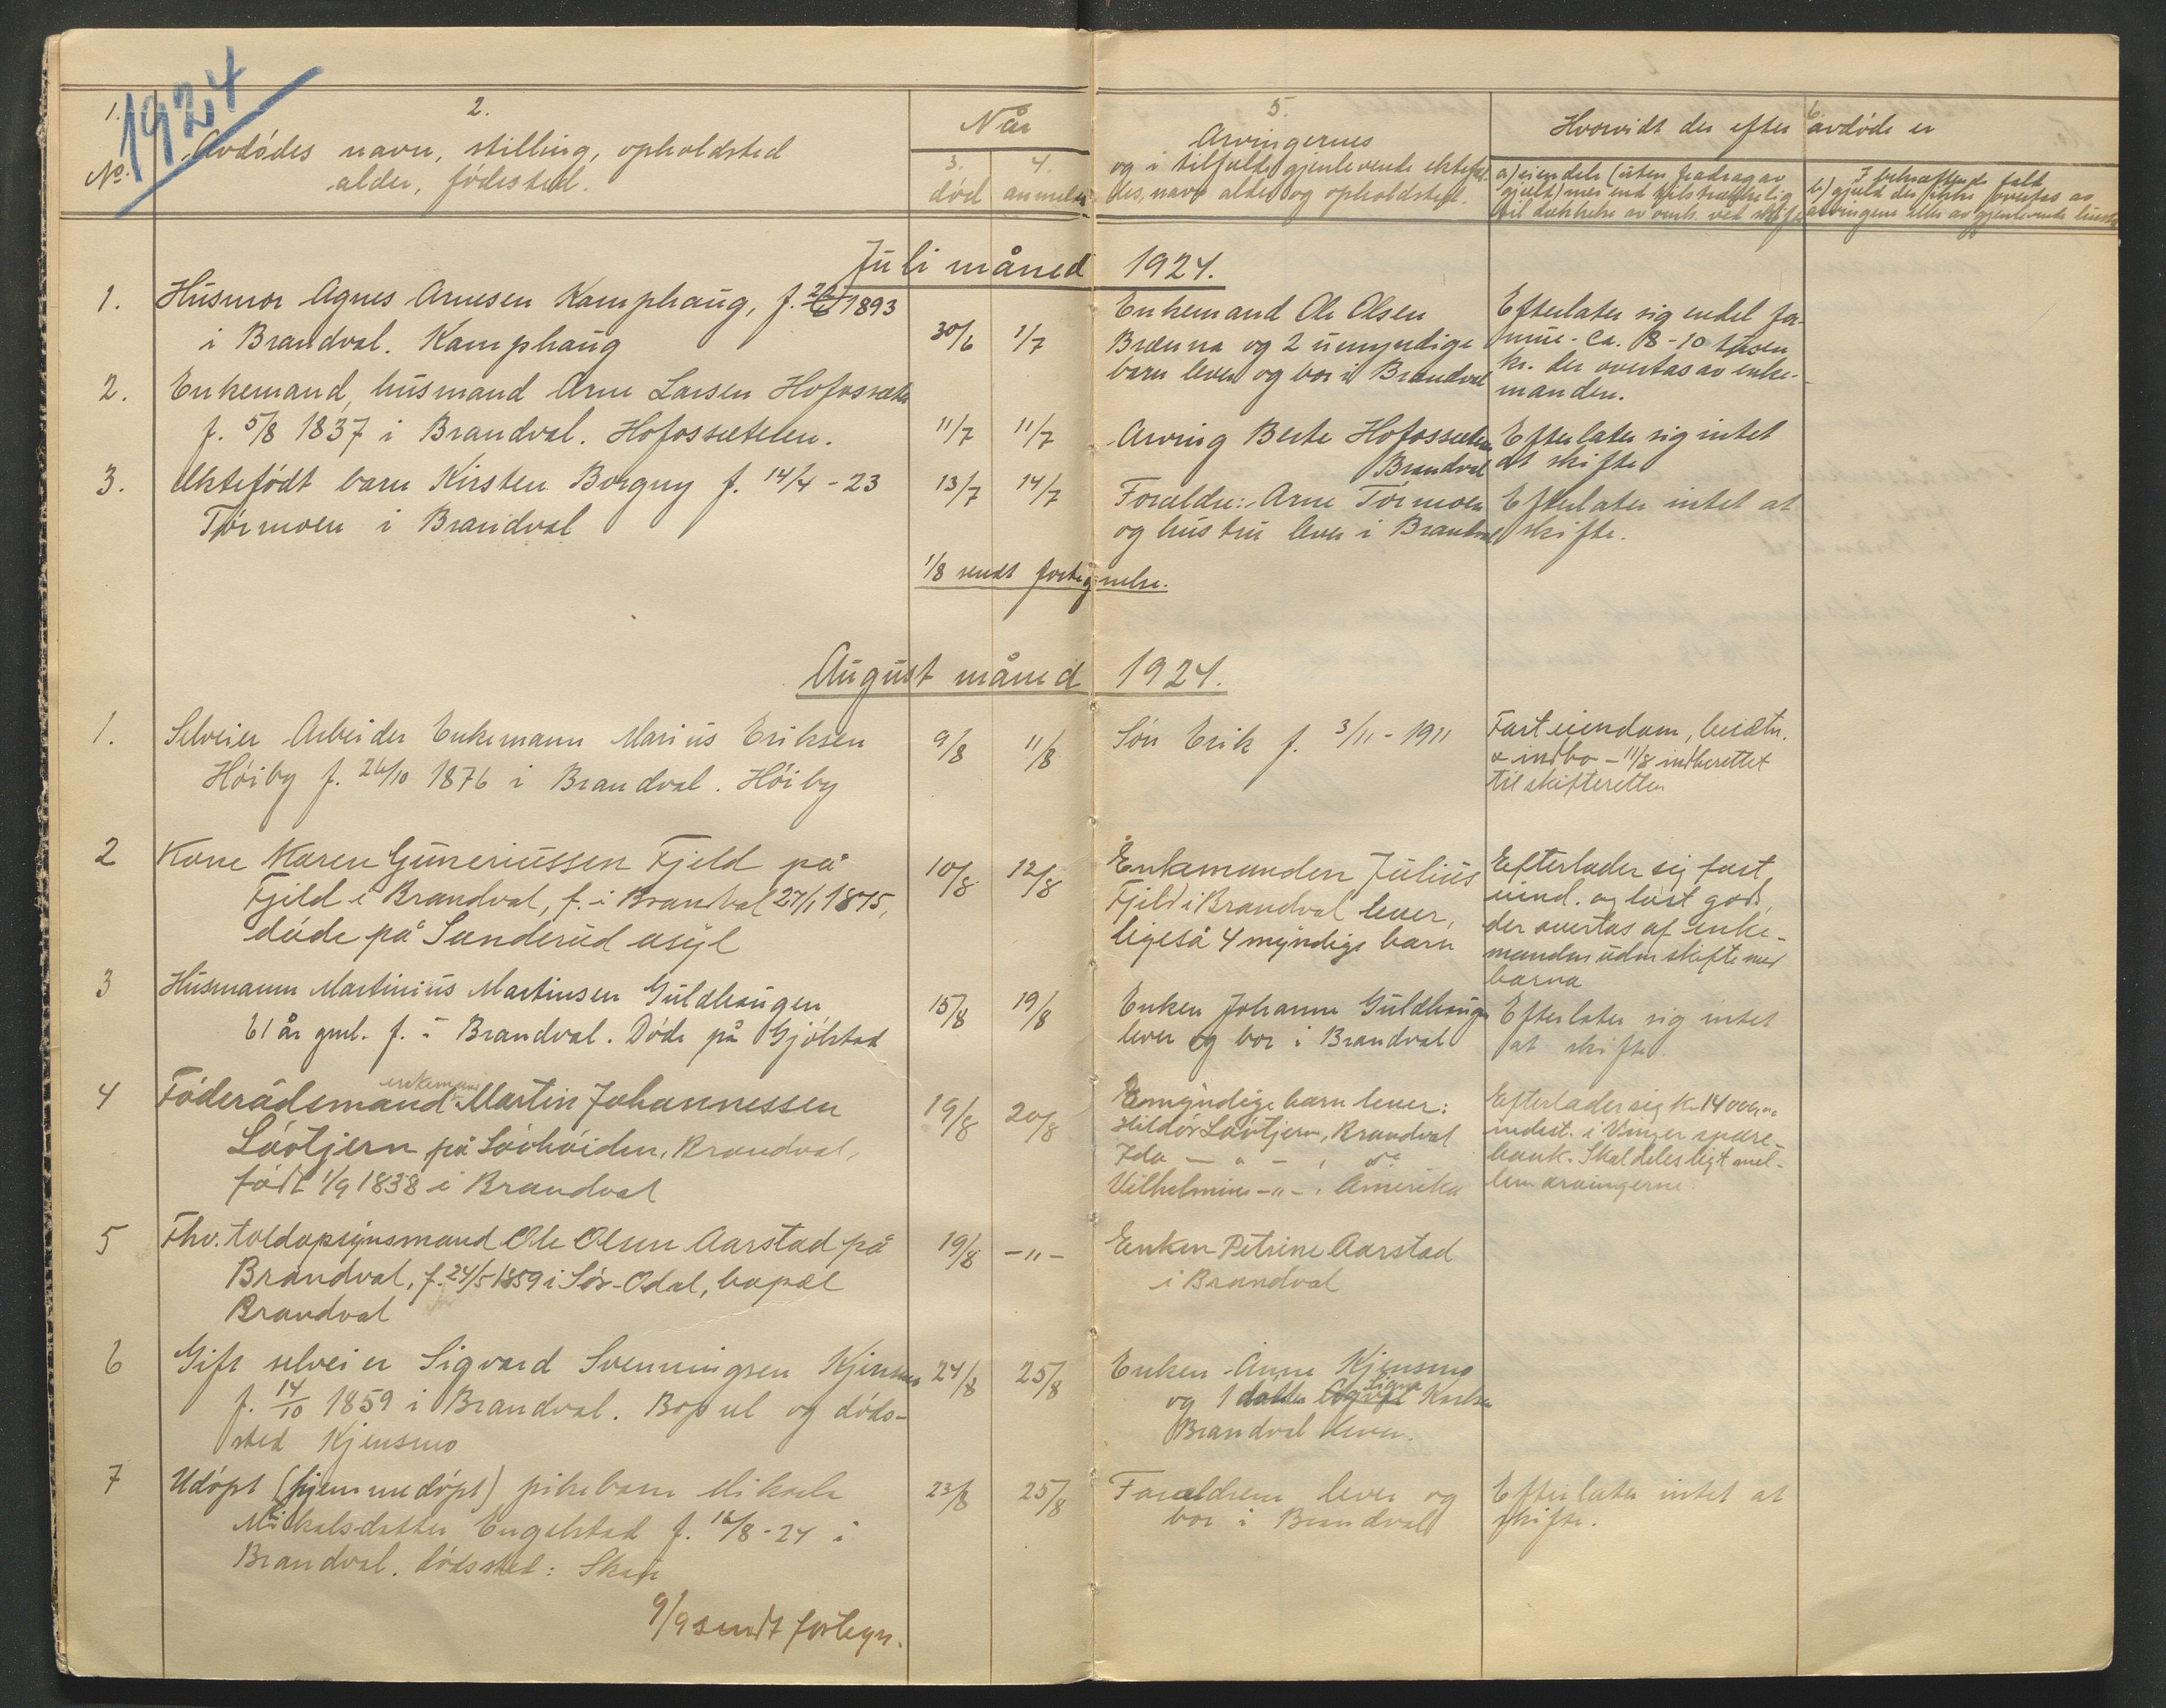 1924
1.
2.
Når
5.
6.
Hvorvidt der efter avdøde er
No.
Avdødes navn, stilling, opholdsted
alder, fødested.
3.
død
4.
anmeldt
Arvingernes
og i tilfælde gjenlevende ektefæl-
les, navn alder og opholdsted.
a) eiendele (uten fradrag av
gjæld) mer end tilstrækkelig
til dækkelse av omk. ved skifte
I bekræftende fald
b) gjæld der ikke overtas av
arvingene eller av gjenlevende
Juli måned 1924.
1. Husmor Agnes Arnesen Kamphaug, f. 1893
i Brandval. Kamphaug
30/6 1/7
Enkemand Ole Olsen
Brænna og 2 umyndige
barn lever og bor i Brandval
Efterlater sig endel for-
mue - ca. 8-10 tusen
kr. der overtas av enke-
manden.
2. Enkemand, husmand Arne Larsen Hofossæter
f. 5/8 1837 i Brandval. Hofossæteren.
11/7 11/7
Arving Berte Hofossæteren
Brandval
Efterlater sig intet
at skifte
3. Ektefødt barn Kirsten Borgny f. 14/4 - 23
Tørmoen i Brandval
13/7 14/7
Forældre: Arne Tørmoen
og hustru lever i Brandval
Efterlater intet at
skifte.
1/8 sendt fortegnelse.
August måned 1924.
1. Selveier Arbeider Enkemann Marius Eriksen
Høiby f. 26/10 1876 i Brandval. Høiby
9/8 11/8
Søn Erik f. 3/11 - 1911
Fast eiendom, besætn.
& indbo - 11/8 indberettet
til skifteretten
2 Kone Karen Guneriussen Fjeld på
Fjeld i Brandval, f. i Brandval 27/1 1875,
døde på Sanderud asyl
10/8 12/8
Enkemanden Julius
Fjeld i Brandval lever,
ligeså 4 myndige barn
Efterlader sig fast
eiend. og løst gods,
der overtas af enke-
manden uden skifte med
barna
3 Husmann Martinius Martinsen Guldhaugen
61 år gml. f. i Brandval. Døde på Gjølstad
15/8 19/8
Enken Johanne Guldhaugen
lever og bor i Brandval
Efterlater sig intet
at skifte.
4 Føderådsmand enkemand Martin Johannessen
Løvtjern på Løvhøiden, Brandval,
født 1/9 1838 i Brandval
19/8 20/8
myndige barn lever:
Hildor Løvtjern, Brandval
Ida - " - , do
Vilhelmine - " - , Amerika
Efterlader sig Kr. 14000
indest. i Vinger spare-
bank. Skal deles ligt mel-
lem arvingerne.
5 Fhv. toldopsynsmand Ole Olsen Aarstad på
Brandval, f. 24/5 1859 i Sør-Odal, bopæl
Brandval
19/8 - " -
Enken Petrine Aarstad
i Brandval
6 Gift selveier Sigvard Svenningsen Kjensmo
f. 14/10 1859 i Brandval. Bopæl og døds-
sted Kjensmo
24/8 25/8
Enken Anne Kjensmo
Signe
og 1 datter
Brandval lever.
7 Udøpt (hjemmedøpt) pikebarn Mikaela
Mikalsdatter Engelstad f. 16/8 - 24 i
Brandval. Dødssted:
23/8 25/8
Forældrene lever og
bor i Brandval
Efterlater intet at
skifte.
9/9 sendt fortegn.